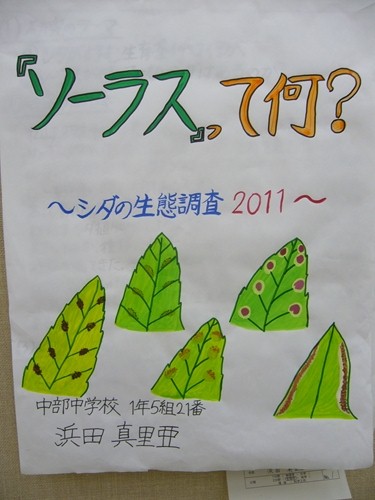 『ソーラス』って何?
～シダの生態調査 2011～
中部中学校 1年5組21番
浜田 真里亜